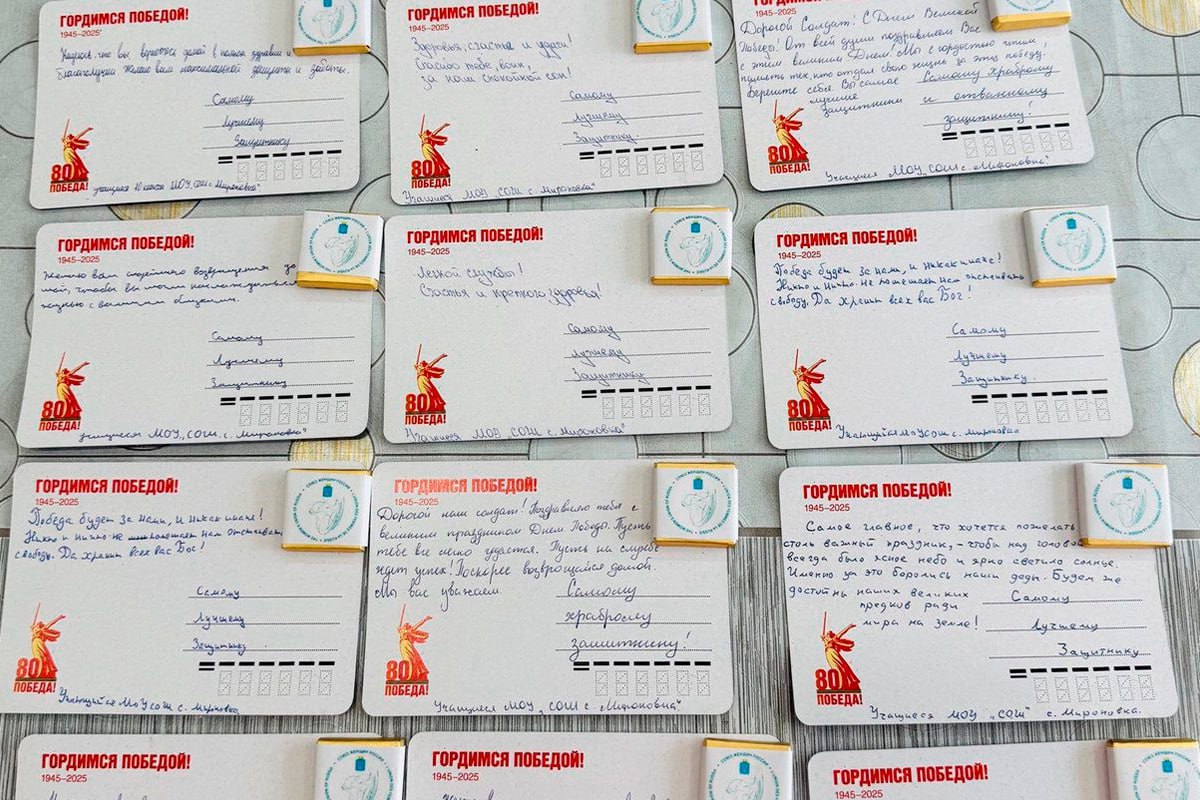 ГОРДИМСЯ ПОБЕДОЙ!
1945–2025
Надеюсь, что вы вернётесь домой в полном здравии и
благополучии желаю вам максимальной защиты и заботы.
Самому
Лучшему
Защитнику
80
ПОБЕДА!
учащиеся 10 класса МОУ „СОШ с. Мироновка"
ГОРДИМСЯ ПОБЕДОЙ!
1945–2025
Здоровья, счастья и удачи!
Спасибо тебе, воин,
за наш спокойной сон!
Самому
Лучшему
Защитнику
80
ПОБЕДА!
Учащиеся МОУ „СОШ с. Мироновка"
1945–2025
Дорогой Солдат! С Днём Великой
Победы! От всей души поздравляем Вас
с этим великим Днём! Мы с гордостью чтим
память тех, кто отдал свою жизнь за эту победу!
Берегите себя Вы самое
лучшие
защитники
Самому храброму
и отважному
защитнику!
80
ПОБЕДА!
Учащиеся МОУ „СОШ с. Мироновка"
ГОРДИМСЯ ПОБЕДОЙ!
1945–2025
Желаю вам скорейшего возвращения до
мой, чтобы вы могли наслаждаться
жизнью с вашими близкими.
Самому
Лучшему
Защитнику
80
ПОБЕДА!
учащиеся МОУ „СОШ с. Мироновка"
ГОРДИМСЯ ПОБЕДОЙ!
1945–2025
Легкой службы!
Счастья и крепкого здоровья!
Самому
Лучшему
Защитнику
80
ПОБЕДА!
Учащиеся МОУ „СОШ с. Мироновка"
ГОРДИМСЯ ПОБЕДОЙ!
1945–2025
Победа будет за нами, и никак иначе!
Никто и ничто не помешает нам отстаивать
свободу. Да хранит всех вас Бог!
Самому
Лучшему
Защитнику
80
ПОБЕДА!
Учащийся МОУ СОШ с. Мироновка
ГОРДИМСЯ ПОБЕДОЙ!
1945–2025
Победа будет за нами, и никак иначе!
Никто и ничто не помешает нам отстаивать
свободу. Да хранит всех вас Бог!
Самому
Лучшему
Защитнику
80
ПОБЕДА!
Учащийся МОУ СОШ с. Мироновка
ГОРДИМСЯ ПОБЕДОЙ!
1945–2025
Дорогой наш солдат! Поздравляю тебя с
великим праздником Днём Победы. Пусть
тебе все легко удастся. Пусть на службе
ждет успех! Поскорее возвращайся домой.
Мы вас уважаем.
Самому
храброму
защитнику!
80
ПОБЕДА!
Учащиеся МОУ „СОШ с. Мироновка"
ГОРДИМСЯ ПОБЕДОЙ!
1945–2025
Самое главное, что хочется пожелать
столь важный праздник, - чтобы над головой
всегда было ясное небо и ярко светило солнце.
Именно за это боролись наши деды. Будем же
достойны наших великих
предков ради
мира на земле!
Самому
Лучшему
Защитнику
80
ПОБЕДА!
Учащиеся МОУ „СОШ" с. Мироновка.
ГОРДИМСЯ ПОБЕДОЙ!
1945–2025
ГОРДИМСЯ ПОБЕДОЙ!
1945–2025
ГОРДИМСЯ ПОБЕДОЙ!
1945–2025